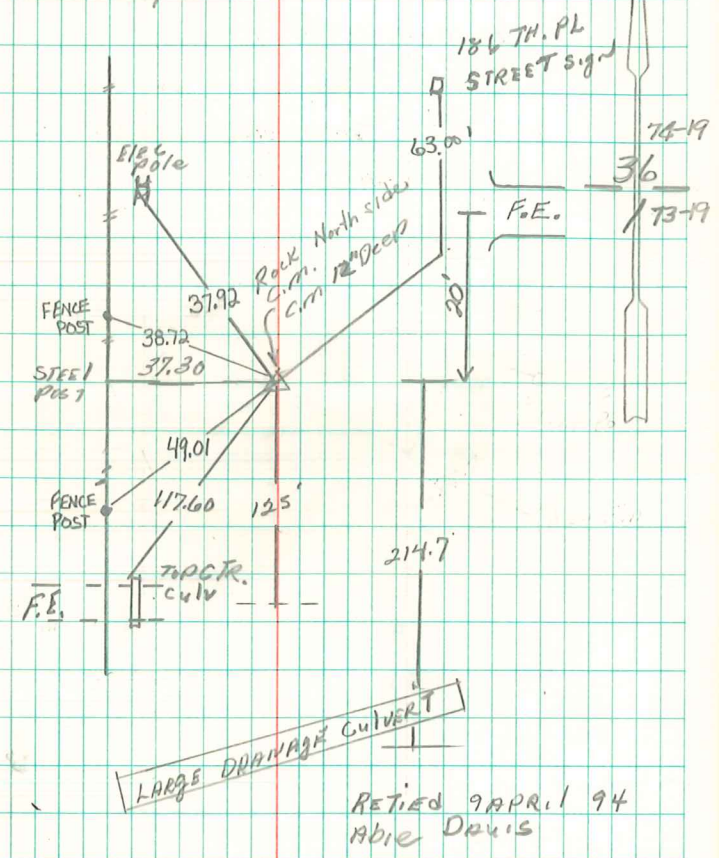 186 TH. PL
STREET Sign
Elec
Pole
63.00'
74-19
36
F.E.
73-19
Rock North side
C.M.
C.M 12" Deep
37.92
20'
FENCE
POST
38.72
STEEl
POST
37.30
49.01
FENCE
POST
117.60
125'
214.7
TOP CTR.
Culv
F.E.
LARGE DRANAGE CulVERT
RETIED 9 APRIl 94
Able DAVIS